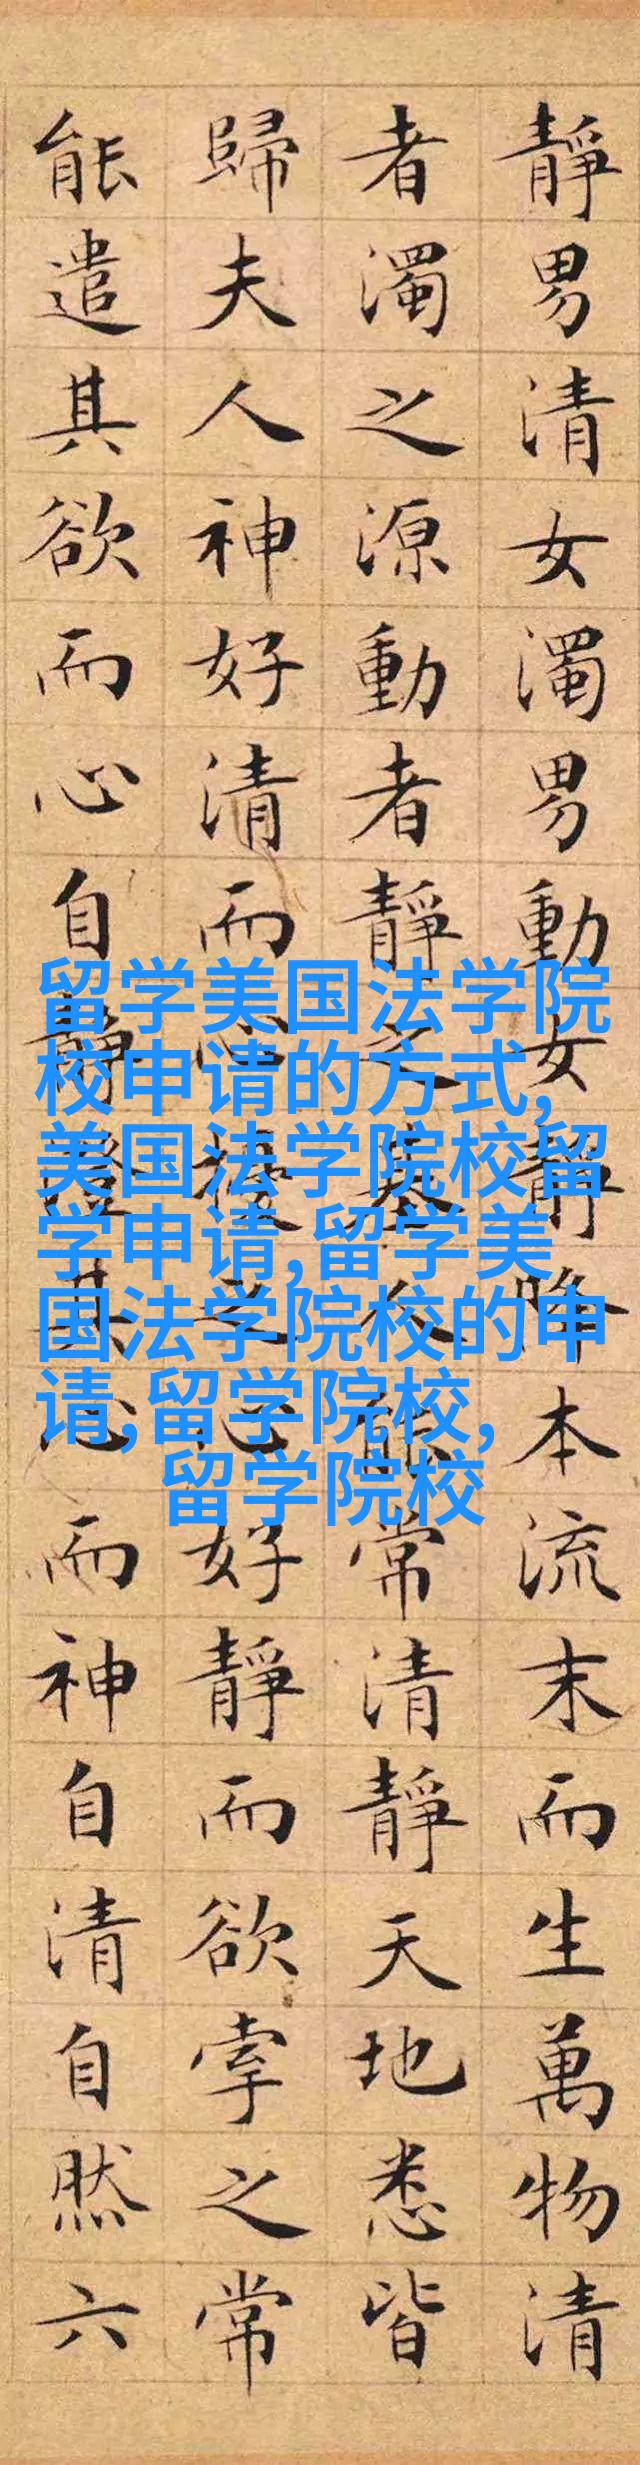 靜男清女濁男動女靜降本流末而生萬物清
者濁之源動者靜之基人能常清靜天地悉皆
歸夫人神好清而心擾之心好靜而欲牽之常
能遣其欲而心自靜澄其心而神自清自然六
留学美国法学院
校申请的方式,
美国法学院校留
学申请,留学美
国法学院校的申
请,留学院校,
留学院校